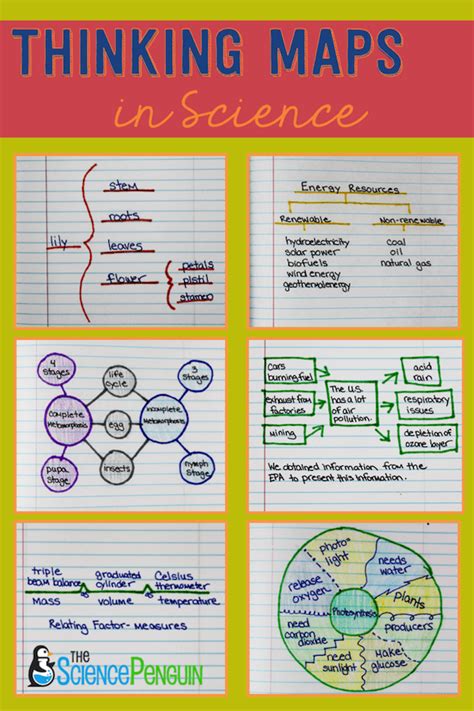 THINKING MAPS
in Science
lily
stem
roots
leaves
flower
petals
pistil
stamen
Energy Resources
Renewable
hydroelectricity
solar power
biofuels
wind energy
geothermal energy
Non-renewable
coal
oil
natural gas
4 stages
life cycle
3 stages
complete metamorphosis
egg
incomplete metamorphosis
pupa stage
insects
nymph stage
cars burning fuel
exhaust from factories
mining
The U.S. has a lot of air pollution.
acid rain
respiratory issues
depletion of ozone layer
We obtained information from the
EPA to present this information.
triple beam balance
mass
graduated cylinder
volume
Celsius thermometer
temperature
Relating Factor- measures
Photosynthesis
photo- light
needs water
plants
producers
make glucose
need sunlight
need carbon dioxide
release oxygen
THE
SCIENCE PENGUIN